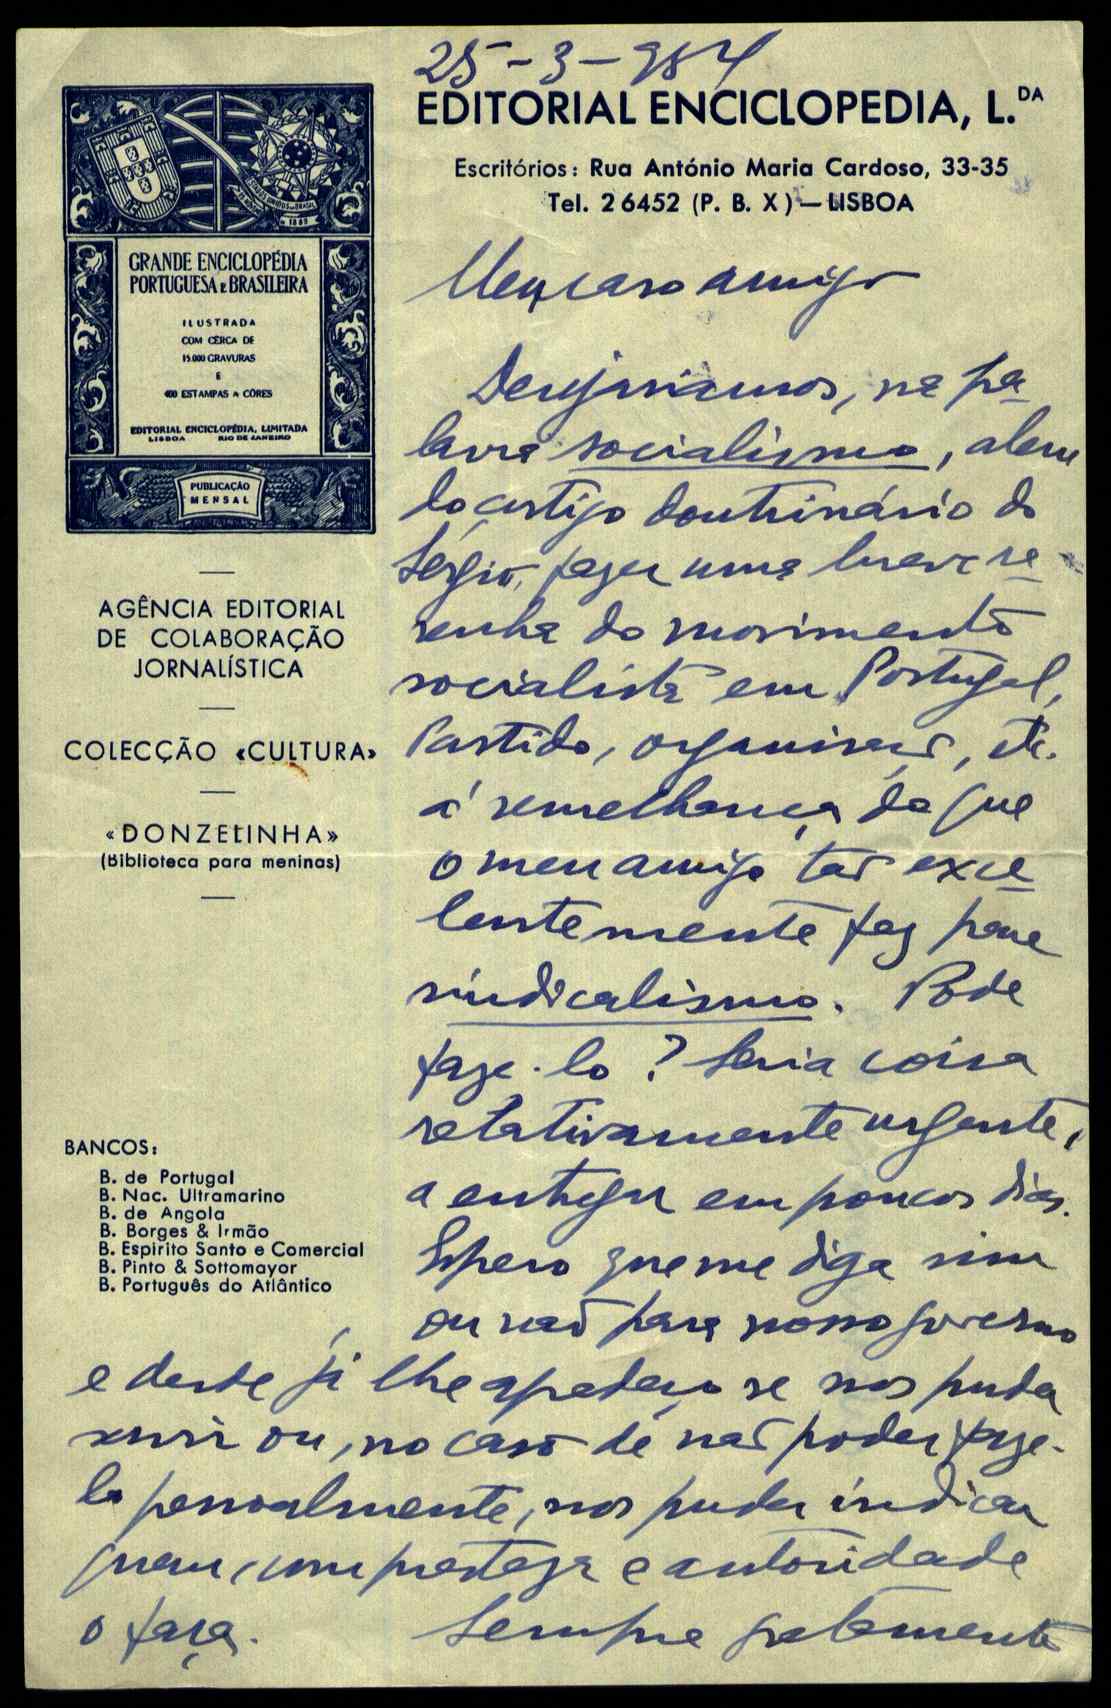 25-3-954
EDITORIAL ENCICLOPEDIA, L.DA
Escritórios: Rua António Maria Cardoso, 33-35
Tel. 26452 (P. B. X) — LISBOA
ESTADOS UNIDOS DO BRASIL
1889
GRANDE ENCICLOPÉDIA
PORTUGUESA E BRASILEIRA
ILUSTRADA
COM CÊRCA DE
15.000 GRAVURAS
E
400 ESTAMPAS A CÔRES
EDITORIAL ENCICLOPÉDIA, LIMITADA
LISBOA RIO DE JANEIRO
PUBLICAÇÃO
MENSAL
AGÊNCIA EDITORIAL
DE COLABORAÇÃO
JORNALÍSTICA
COLECÇÃO «CULTURA»
«DONZELINHA»
(Biblioteca para meninas)
BANCOS:
B. de Portugal
B. Nac. Ultramarino
B. de Angola
B. Borges & Irmão
B. Espirito Santo e Comercial
B. Pinto & Sottomayor
B. Português do Atlântico
Meu caro amigo
Desejariamos, na pa-
lavra socialismo, alem
do artigo doutrinário do
Sérgio, fazer uma breve re-
senha do movimento
socialista em Portugal,
Partido, organisaç, etc.
á semelhança do que
o meu amigo tão exce-
lentemente fez para
sindicalismo. Pode
faze-lo? Seria coisa
relativamente urgente,
a entregar em poucos dias.
Espero que me diga sim
ou não para nosso governo
e desde já lhe agradeço se nos puder
servir ou, no caso de não poder faze-
lo pessoalmente, nos puder indicar
quem, com presteza e autoridade
o faça. Sempre gratamente